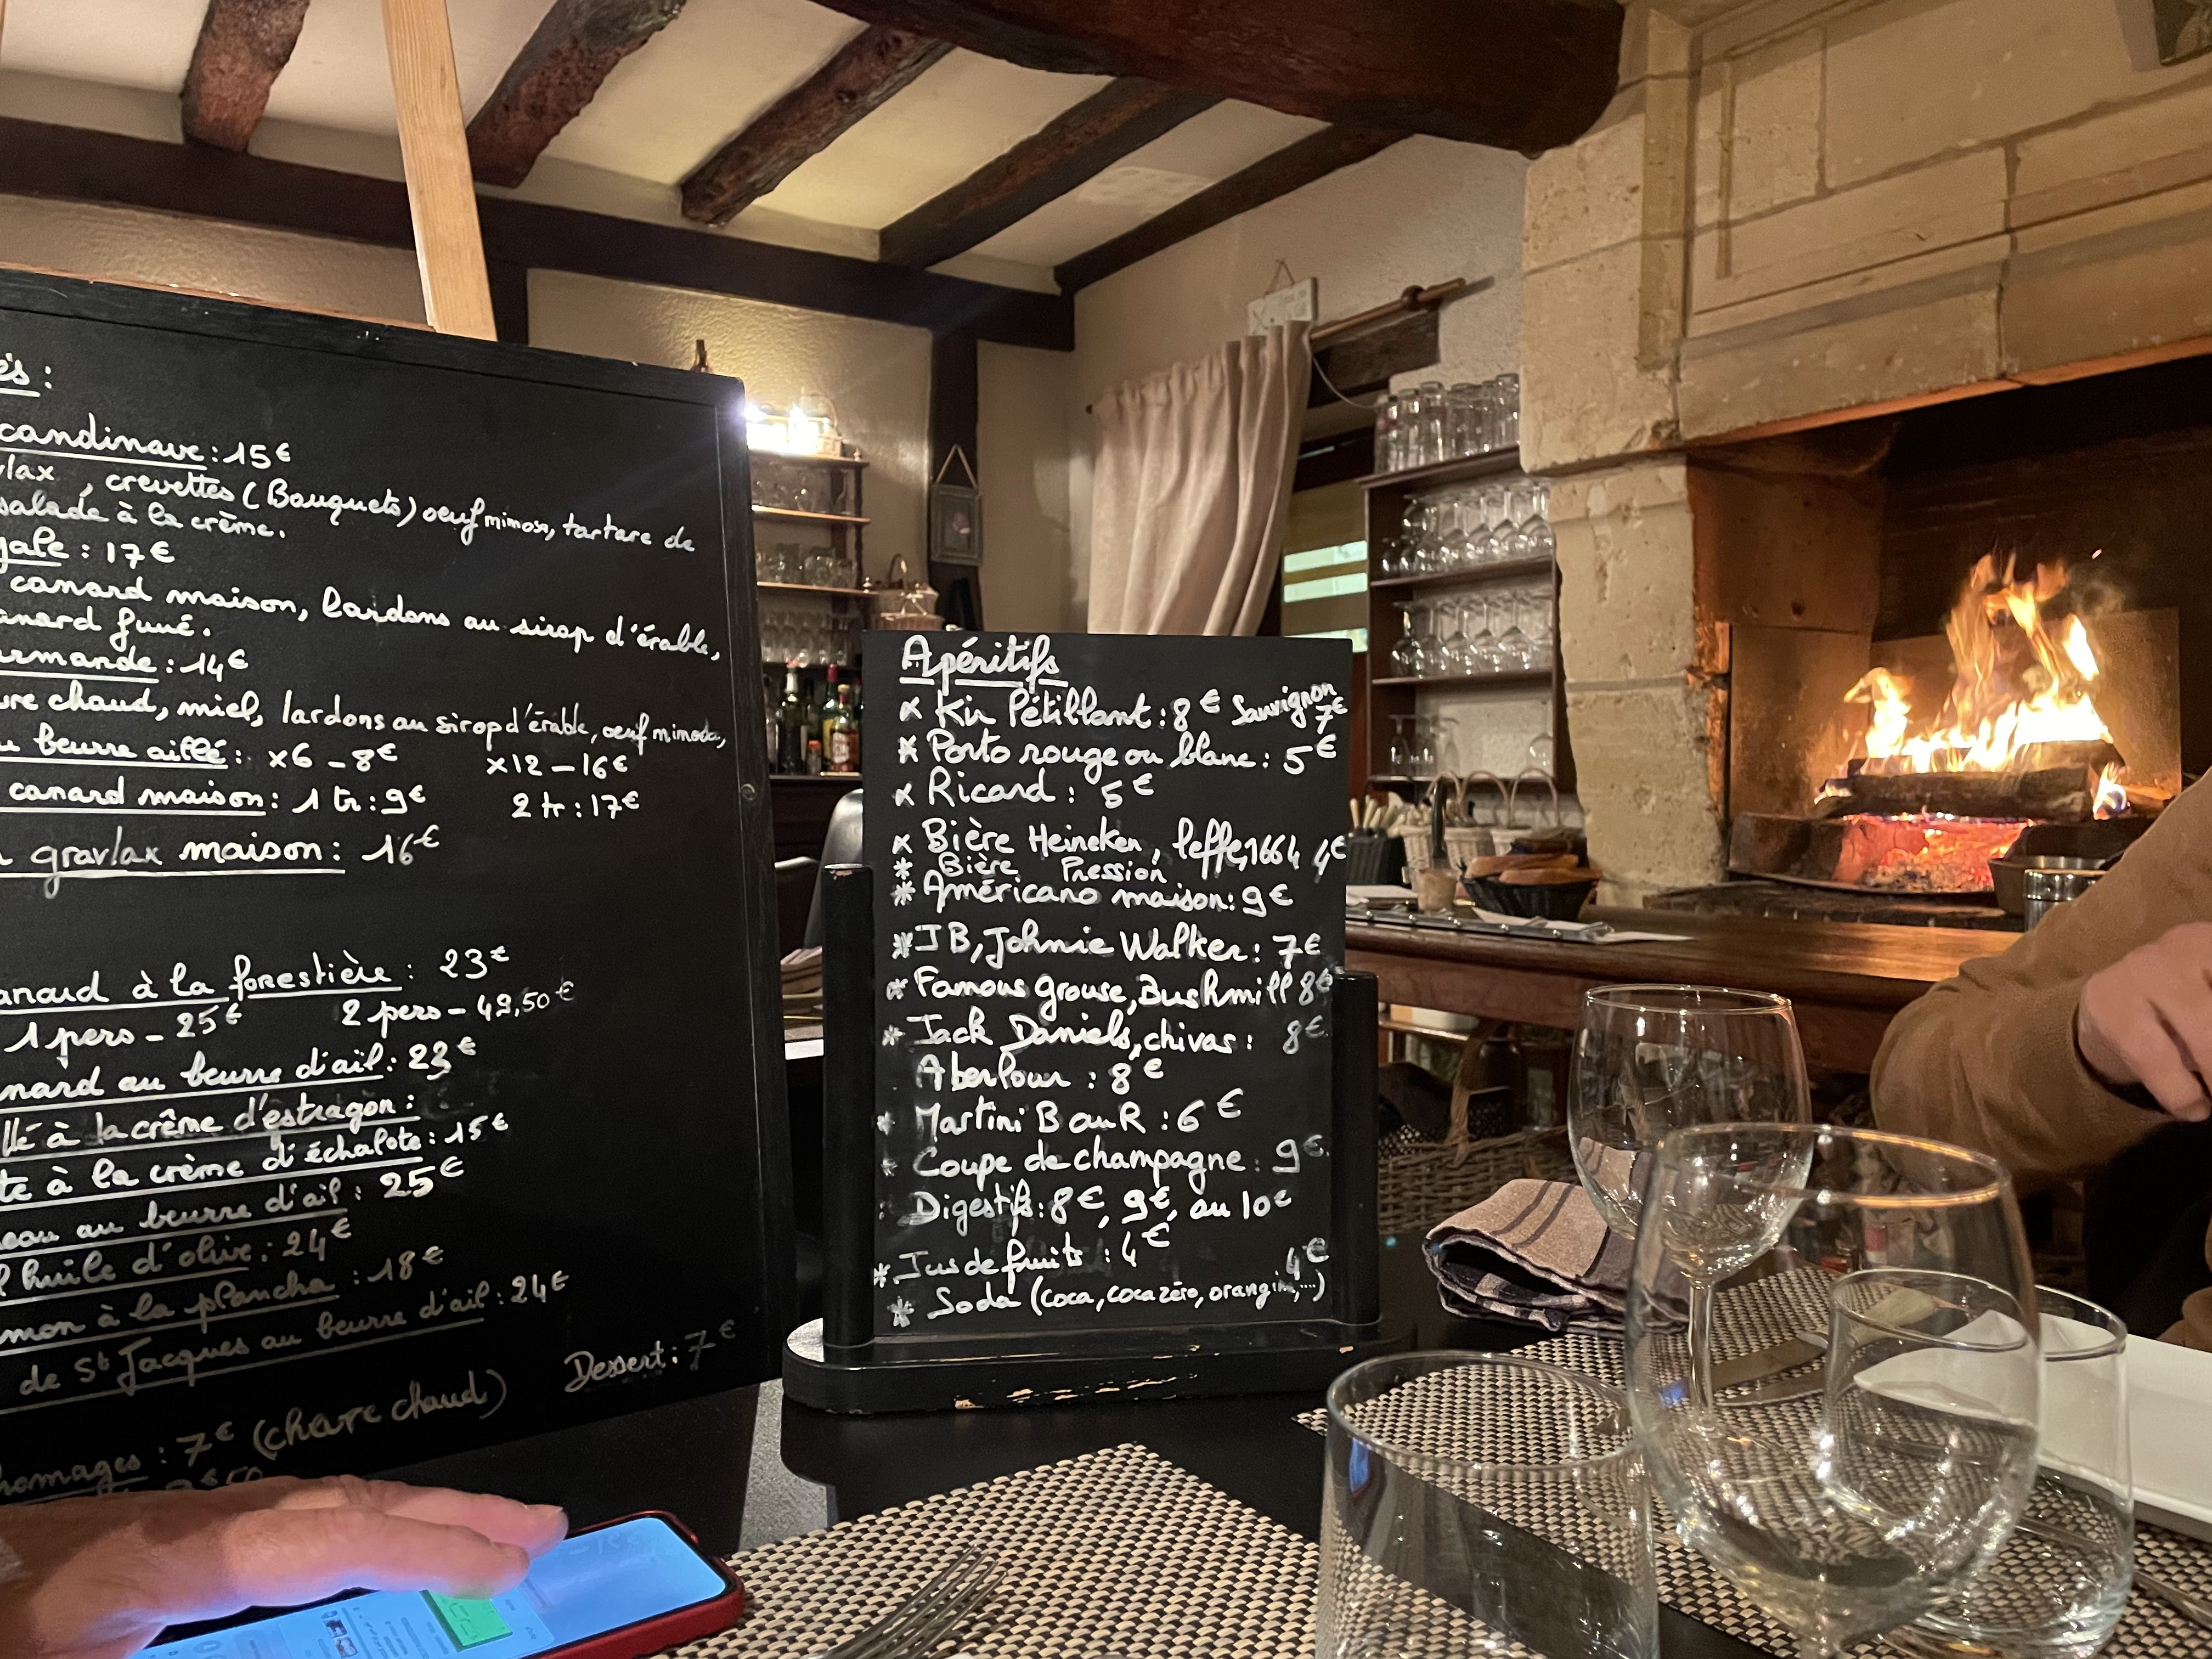 és :
candinave : 15€
lax , crevettes (Bouquets) oeuf mimosa, tartare de
salade à la crème.
gale : 17€
canard maison, lardons au sirop d'érable,
anard fumé.
urmande : 14€
vre chaud, miel, lardons au sirop d'érable, oeuf mimosa,
u beurre aillé : x6 - 8€ x12 - 16€
canard maison : 1 tr : 9€ 2 tr : 17€
gravlax maison : 16€
anard à la forestière : 23€
1 pers - 25€ 2 pers - 49,50€
nard au beurre d'ail : 23€
llé à la crême d'estragon :
te à la crème d'échalote : 15€
eau au beurre d'ail : 25€
l'huile d'olive : 24€
mon à la plancha : 18€
de St Jacques au beurre d'ail : 24€
Dessert : 7€
romages : 7€ (chèvre chaud)
Apéritifs
x Kir Pétillant : 8€ Sauvignon 7€
x Porto rouge ou blanc : 5€
x Ricard : 5€
x Bière Heineken, leffe, 1664 4€
* Bière Pression
* Américano maison : 9€
* JB, Johnie Walker : 7€
* Famous grouse, Bushmill 8€
* Jack Daniels, chivas : 8€
Aberlour : 8€
* Martini B ou R : 6€
* Coupe de champagne : 9€
: Digestifs : 8€, 9€, ou 10€
* Jus de fruits : 4€
* Soda (coca, coca zéro, orangina, ...) 4€